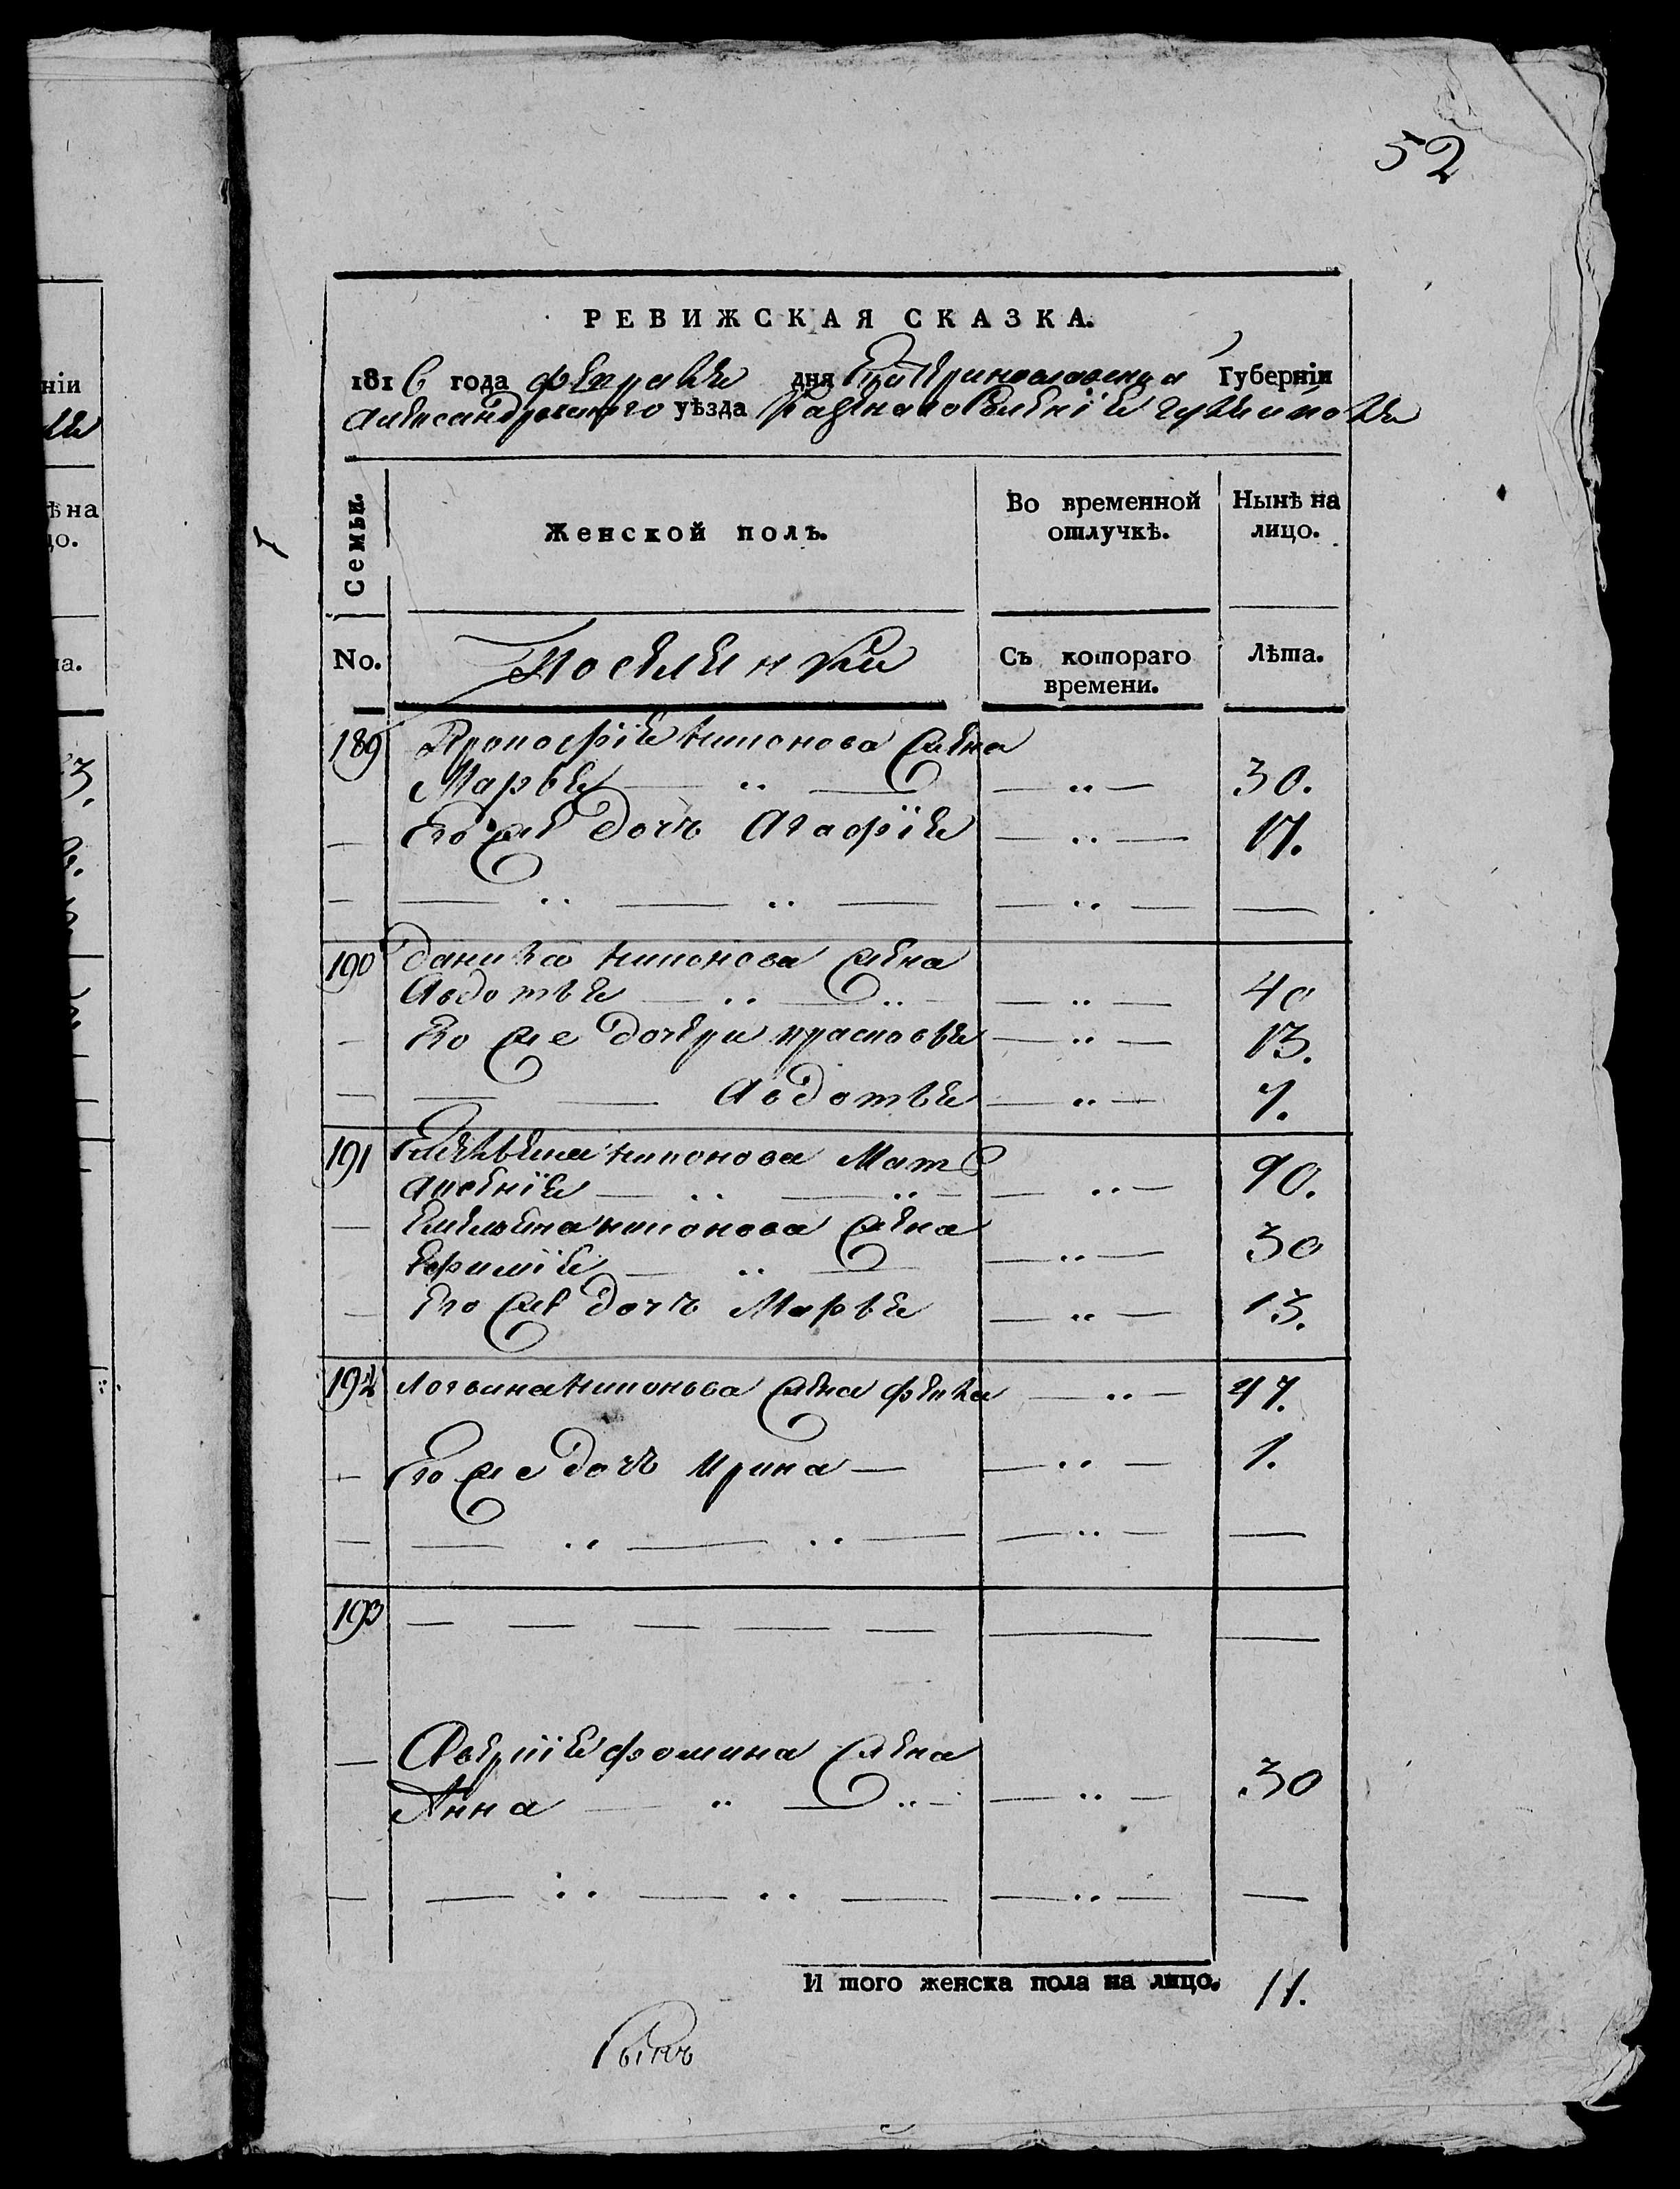 52
РЕВИЖСКАЯ СКАЗКА.
1816 года февраля дня Екатеринославская Губернїи
Александровского уѣзда казенного селенїя
Семьи. Женской полъ. Во временной отлучкѣ. Нынѣ на лицо.
No. Поселянки Съ котораго времени. Лѣта.
189 Прокофїя никонова жена
Марья — ,, — — ,, — 30.
— Его же дочь Агафїя — ,, — 17.
— — ,, — ,, — — ,, — —
190 Данила никонова жена
Авдотья — ,, — ,, — — ,, — 40
— Его же дочери прасковья — ,, — 13.
— — — Авдотья — ,, — 7.
191 Емельяна никонова Мать
Аксенїя — ,, — ,, — — ,, — 90.
— Емельяна никонова жена
Ефимїя — ,, — — ,, — 30
— Его же дочь Марья — ,, — 13.
192 логвина никонова жена фекла — ,, — 47.
— Его же дочь Ирина — — ,, — 1.
— — ,, — ,, — — ,, — —
193 — — — — — — —
— Аверїя фомина жена
Анна — ,, — ,, — — ,, — 30
— — ,, — ,, — — ,, — —
И того женска пола на лицо. 11.
нїи
ѣ на
цо.
та.